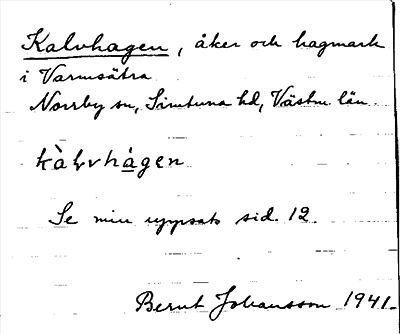 Kalvhagen, åker och hagmark
i Varmsätra
Norrby sn, Simtuna hd, Västm. län
kàlvhágen
Se min uppsats sid. 12.
Bernt Johansson 1941.